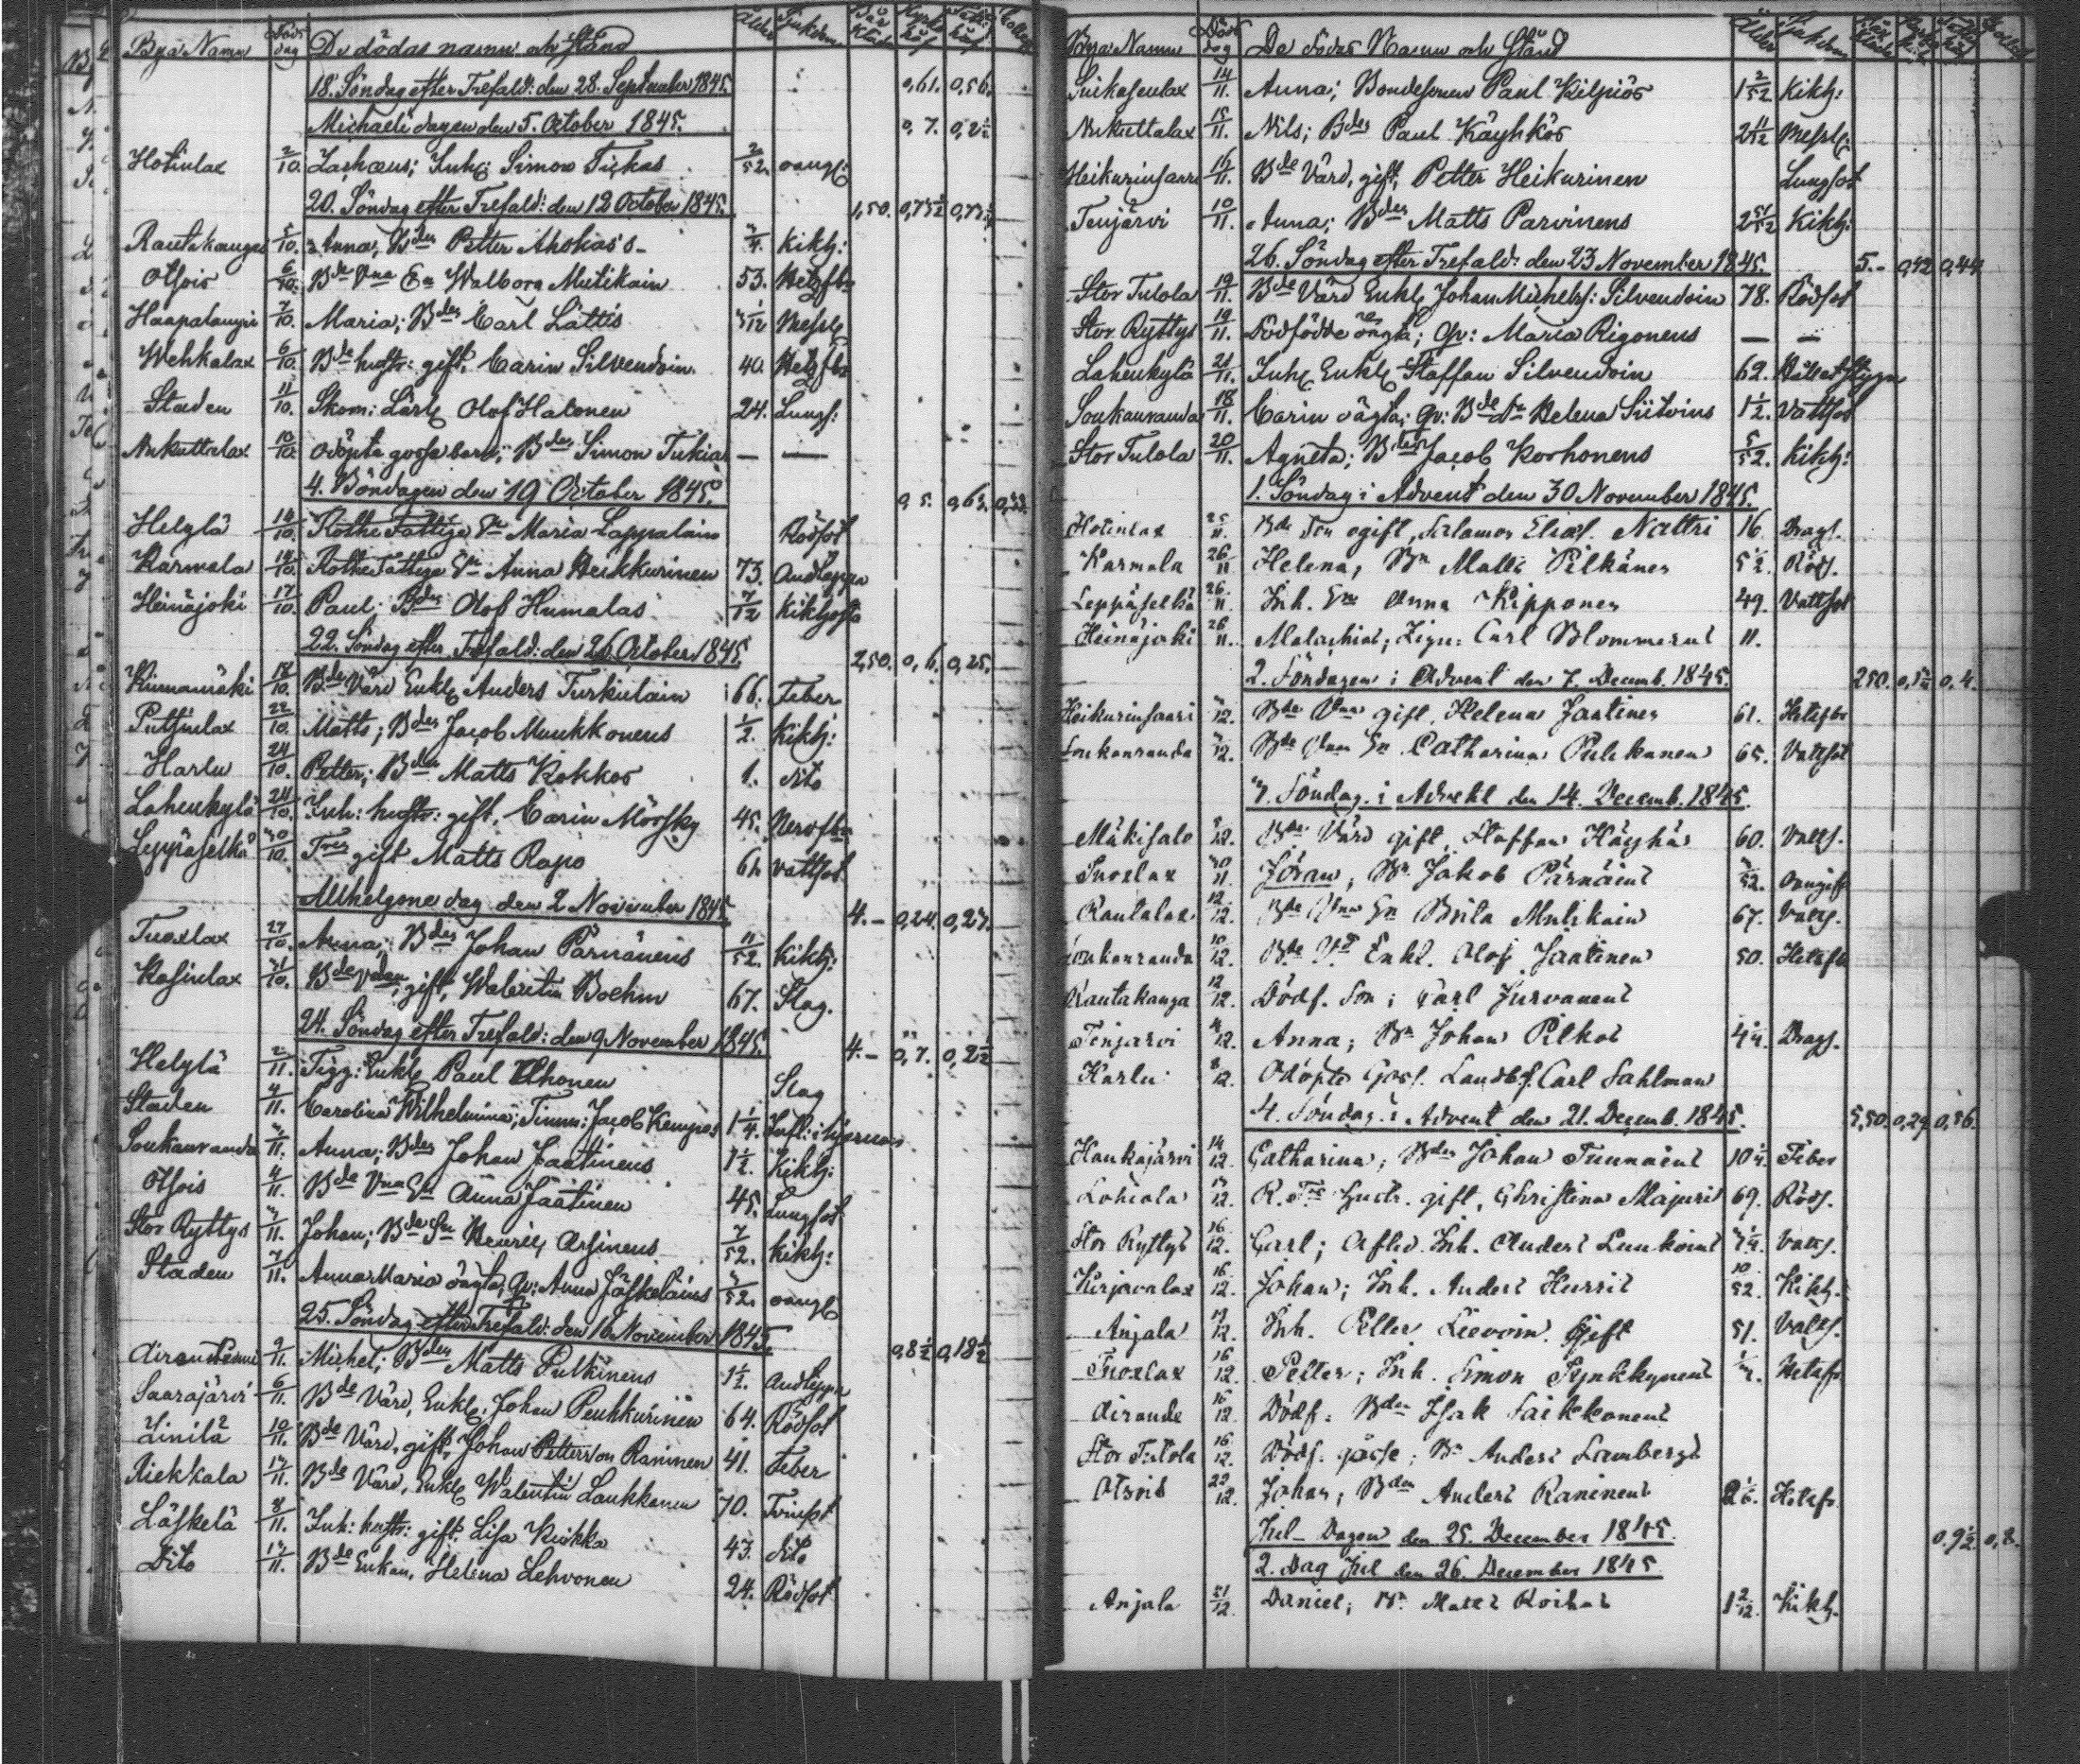 Bya Namn Döds dag De dödas namn och stånd Ålder Sjukdom
18. Söndag efter Trefald: den 28. September 1845. 0,61. 0,56.
Michaeli dagen den 5. October 1845. 0,7. 0,2½
Hotinlax 2/10. Zachæus; Inh: Simon Tickas 2/52. oangf:
20. Söndag efter Trefald: den 12 October 1845. 1,50. 0,75½
Rautakangas 5/10. Anna; Bdes Petter Ahokas's 3/4. Kikh:
Otsois 6/10. Bde Vna En Walborg Mutikain 53. Hetzfbr
Haapalampi 7/10. Maria; Bdes Carl Lättis Meslg
Wehkalax 6/10. Bde hustr: gift, Carin Silvendoin 40. Hetzfbr
Staden 11/10. Skom: Lärl Olof Halonen 24. Lungs:
Ankuttalax 10/10. odöpta gossebarn; Bdes Simon Tukia — —
4. Böndagen den 19 October 1845. 0,5. 0,63.
Helylä 14/10. Rothe Fattige En Maria Lappalain Rödsot
Karmala 14/10. Rothe Fattige En Anna Heikkurinen 73. Andtäppa
Heinäjoki 17/10. Paul; Bdes Olof Humalas 7/12 Kikhosta
22. Söndag efter Trefald: den 26 October 1845. 2,50. 0,6. 0,25.
Kiimamäki 18/10. Bde Värd Enkl Anders Turkulain 66. Feber
Putsinlax 22/10. Matts; Bdes Jacob Muukkonens 1/2. Kikh:
Harlu 24/10. Petter; Bdes Matts Kokkos 1. dito
Lahenkylä 24/10. Inh: hustr: gift, Carin Mörsky 45. Nervfbr
Leppäselkä 30/10. gift Matts Rapo 61. Vattsot
Allhelgona dag den 2 November 1845 4.- 0,24. 0,27.
Tuoxlax 27/10. Anna; Bdes Johan Pärnänens 11/52. Kikh:
Kosinlax 31/10. gift, Walentin Boehm 67. Slag.
24. Söndag efter Trefald: den 9 November 1845. 4.- 0,7. 0,2½
Helylä 2/11. Tigg: Enkl Paul Ihonen Slag
Staden 4/11. Carolina Wilhelmina; Timm: Jacob Kempes 1¼. Infl: i hjernan
Soukanranda 3/11. Anna; Bdes Johan Jaatinens 1½. Kikh:
Otsois 4/11. Bde Vna En Anna Jäätinen 45. Lungsot
Stor Ryttys 3/11. Johan; Bde Sn Henric Arsinens 7/52. Kikh:
Staden 7/11. Anna Maria oägta; Qv: Anna Jäskeläins 3/52. oangf
25. Söndag efter Trefald: den 16 November 1845 0,8½ 0,18½
Airandniemi 9/11. Michel; Bdes Matts Pulkinens 1½. Andtäppa
Saarajärvi 6/11. Bde Värd, Enkl: Johan Penkkurinen 64. Rödsot
Linilä 10/11. Bde Värd, gift, Johan Pettersson Raninen 41. Feber
Riekkala 12/11. Bde Värd, Enkl Walentin Laukkanen 70. Tvinsot
Läskelä 8/11. Inh: hustr: gift, Lisa Kuikka 43. dito
Dito 12/11. Bde Enkan, Helena Lehvonen 24. Rödsot
Bya Namn Döds dag De dödas Namn och Stånd Ålder Sjukdom
Suikasenlax 14/11. Anna; Bondesonen Paul Kiljuös 1 2/52 Kikh:
Ankuttalax 15/11. Nils; Bdes Paul Käyhkös 2 11/12 Meslg:
Heikurinsaari 16/11. Bde Värd, gift, Petter Heikurinen Lungsot
Tenjärvi 10/11. Anna; Bdes Matts Parvinens 2 51/52 Kikh:
26. Söndag efter Trefald: den 23 November 1845. 5.- 0,42 0,44
Stor Tulola 19/11. Bde Värd Enkl Johan Michelss: Silvendoin 78. Rödsot
Stor Ryttys 19/11. Dödfödde oägta; Qv: Maria Rigonens — —
Lahenkylä 21/11. Inh Enkl Staffan Silvendoin 62. Håll och Styng
Soukanranda 18/11. Carin oägta; Qv: Bde dr Helena Siitoins 1½. Vattsot
Stor Tulola 20/11. Agneta; Bdes Jacob Korhonens 5/52. Kikh:
1. Söndag i Advent den 30 November 1845.
Hotinlax 25/11. Bde Son ogift, Salamon Elias. Nättri 16. Drags.
Karmala 26/11. Helena, Bn Matts Pitkänes 5½. Röds.
Leppäselkä 26/11. Inh. Enk Anna Kipponen 49. Vattsot
Heinäjoki 26/11. Malachias; Zign: Carl Blommerus 11.
2. Söndagen i Advent den 7. Decemb. 1845. 2,50. 0,4.
Heikurinsaari 3/12. Bde Vna gift, Helena Jaatinen 61. Hetsfbr
Soukanranda 3/12. Bde Vna En Catharina Pulkanen 65. Vattsot
3. Söndag i Advent den 14. Decemb. 1845.
Mäkisalo Bde Värd gift, Staffan Häyhä 60. Vatts.
Tuoxlax 30/11 Göran; Bn Jakob Pärnäins 3/52. Oangift
Rautalax 12/12. Bde Vna En Brita Mutikain 67. Vatts.
Soukanranda 10/12. Bde Vd Enkl. Olof Jaatinen 50. Hetsfb
Rautakanga 12/12. Dödf. Son; Carl Hurvanens
Tenjärvi 4/12. Anna; Bn Johan Pitkos 4¼. Drags.
Harlu 8/12. Odöpte Goss. Landbf. Carl Sahlman
4. Söndag i Advent den 21. Decemb. 1845. 5,50. 0,29. 0,56.
Haukajärvi 14/12. Catharina; Bdes Johan Tunnains 10¼. Feber
Lohiola 13/12. hustr. gift, Christina Majuri 69. Röds.
Stor Ryttys 16/12. Carl; Afled. Inh. Anders Luukoins Vatts.
Kirjavalax 16/12. Johan; Inh. Anders Hurris 10/52. Kikh.
Anjala 17/12. Inh. Petter Lievoin. Gift 51. Vatts.
Tuoxlax 16/12. Petter; Inh. Simon Pynkkynens Hetsfr
Airande 15/12. Dödf: Bdes Isak Saikkonens
Stor Tulola 16/12. Dödf. gosse; Bn Anders Lambergs
Otsois 22/12. Johan; Bdes Anders Raninens Hetsfr
Jul-Dagen den 25. December 1845. 0,9½ 0,8.
2. Dag Jul den 26. December 1845
Anjala 21/12. Daniel; Bn Matts Roihas 1 2/12. Kikh.